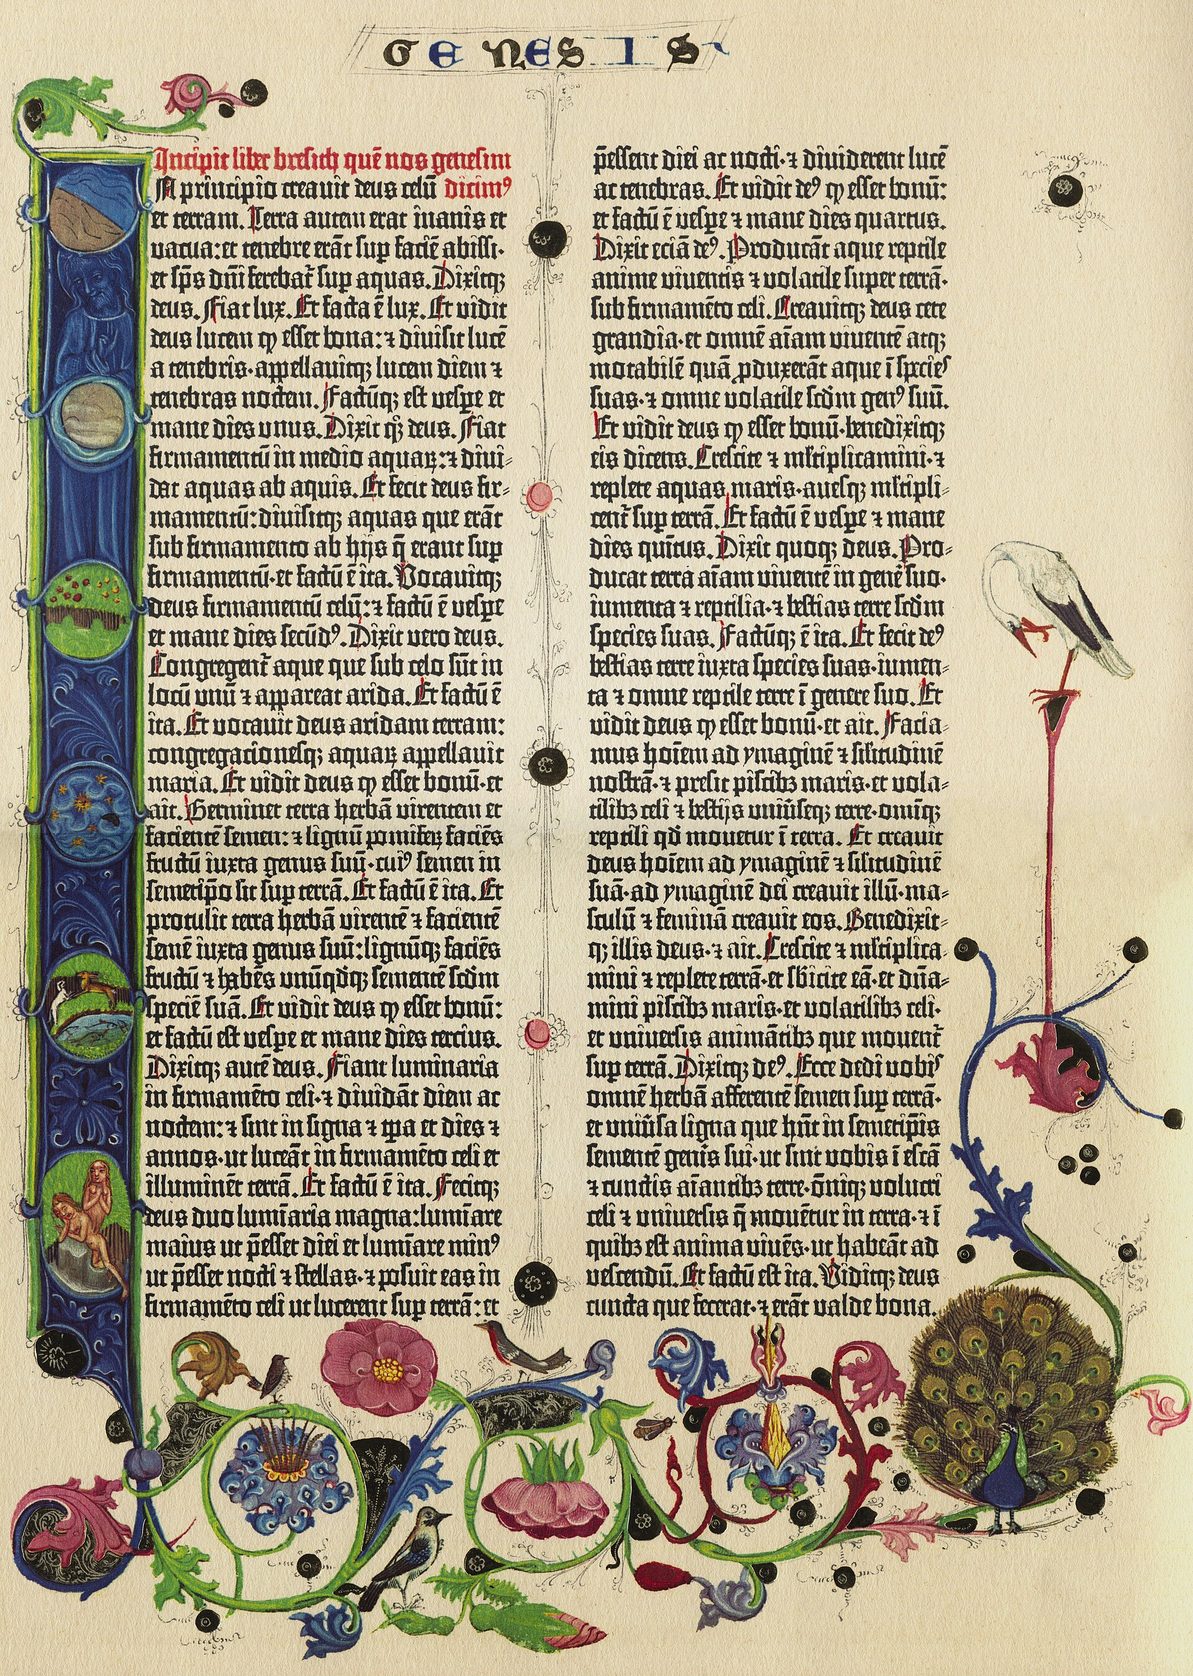 GENESIS
Incipit liber bresith quē nos genesim
IN principio creauit deus celū dicimꝰ
et terram. Terra autem erat inanis et
vacua: et tenebre erāt sup faciē abissi·
et sp̄s dn̄i ferebat̄ sup aquas. Dixitqꝫ
deus. Fiat lux. Et facta ē lux. Et vidit
deus lucem ꝙ esset bona: ⁊ diuisit lucē
a tenebris· appellauitqꝫ lucem diem ⁊
tenebras noctem. Factūqꝫ est vespe et
mane dies vnus. Dixit qꝫ deus. Fiat
firmamentū in medio aquaꝝ: ⁊ diui-
dat aquas ab aquis. Et fecit deus fir-
mamentū: diuisitqꝫ aquas que erāt
sub firmamento ab hijs q̄ erant sup
firmamentū· et factū ē ita. Vocauitqꝫ
deus firmamentū celū: ⁊ factū ē vespe
et mane dies secūdꝰ. Dixit vero deus.
Congregent̄ aque que sub celo sūt in
locū vnū ⁊ appareat arida. Et factū ē
ita. Et vocauit deus aridam terram:
congregacionesqꝫ aquaꝝ appellauit
maria. Et vidit deus ꝙ esset bonū· et
ait. Germinet terra herbā virentem et
facientē semen: ⁊ lignū pomifeꝝ faciēs
fructū iuxta genus suū· cuiꝰ semen in
semetip̄o sit sup terrā. Et factū ē ita. Et
protulit terra herbā virentē ⁊ facientē
semē iuxta genus suū: lignūqꝫ faciēs
fructū ⁊ habēs vnūqdqꝫ sementē scdm
speciē suā. Et vidit deus ꝙ esset bonū:
et factū est vespe et mane dies tercius.
Dixitqꝫ autē deus. Fiant luminaria
in firmamēto celi· ⁊ diuidāt diem ac
noctem: ⁊ sint in signa ⁊ tp̄a et dies ⁊
annos· ut luceāt in firmamēto celi et
illuminēt terrā. Et factū ē ita. Fecitqꝫ
deus duo lumīaria magna: lumīare
maius ut p̄esset diei et lumīare minꝰ
ut p̄esset nocti ⁊ stellas· ⁊ posuit eas in
firmamēto celi ut lucerent sup terrā: et
p̄essent diei ac nocti· ⁊ diuiderent lucē
ac tenebras. Et vidit deꝰ ꝙ esset bonū:
et factū ē vespe ⁊ mane dies quartus.
Dixit eciā deꝰ. Producāt aque reptile
anime viuentis ⁊ volatile super terrā·
sub firmamēto celi. Creauitqꝫ deus cete
grandia· et omnē aīam viuentē atqꝫ
motabilē quā ꝓduxerāt aque ī species
suas· ⁊ omne volatile scdm genꝰ suū.
Et vidit deus ꝙ esset bonū· benedixitqꝫ
eis dicens. Crescite ⁊ mltiplicamini· ⁊
replete aquas maris· auesqꝫ mltipli-
cent̄ sup terrā. Et factū ē vespe ⁊ mane
dies quītus. Dixit quoqꝫ deus. Pro-
ducat terra aīam viuentē in genē suo·
iumenta ⁊ reptilia· ⁊ bestias terre scdm
species suas. Factūqꝫ ē ita. Et fecit deꝰ
bestias terre iuxta species suas· iumen-
ta ⁊ omne reptile terre ī genere suo. Et
vidit deus ꝙ esset bonū· et ait. Facia-
mus hoīem ad ymaginē ⁊ silitudinē
nostrā· ⁊ presit piscibꝫ maris· et vola-
tilibꝫ celi ⁊ bestijs vniūseqꝫ terre· omīqꝫ
reptili qd mouetur ī terra. Et creauit
deus hoīem ad ymaginē ⁊ silitudinē
suā· ad ymaginē dei creauit illū· ma-
sculū ⁊ feminā creauit eos. Benedixit-
qꝫ illis deus· ⁊ ait. Crescite ⁊ mltiplica-
mini ⁊ replete terrā· et sbicite eā· et dn̄a-
mini piscibꝫ maris· et volatilibꝫ celi·
et vniuersis animātibꝫ que mouent̄
sup terrā. Dixitqꝫ deꝰ. Ecce dedi vobis
omnē herbā afferentē semen sup terrā·
et vniūsa ligna que hn̄t in semetip̄is
sementē genīs sui· ut sint vobis ī escā
⁊ cunctis aīantibꝫ terre· ōniqꝫ volucri
celi ⁊ vniuersis q̄ mouētur in terra· ⁊ ī
quibꝫ est anima viuēs· ut habeāt ad
vescendū. Et factū est ita. Viditqꝫ deus
cuncta que fecerat· ⁊ erāt valde bona.